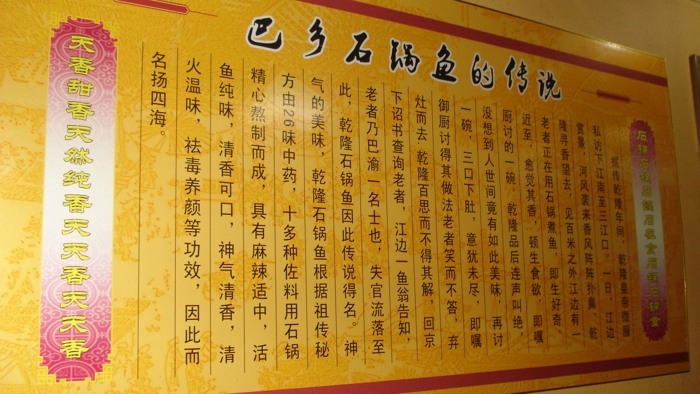 巴乡石锅鱼的传说
据传乾隆年间，乾隆皇帝微服
私访下江南至三江口，一日，江边
赏景，河风袭来香风阵阵扑鼻，乾
隆寻香望去，见百米之外江边有一
老者正在用石锅煮鱼，即生好奇，
近至，愈觉其香，顿生食欲，即嘱
厨讨的一碗，乾隆品后连声叫绝，
没想到人世间竟有如此美味，再讨
一碗，三口下肚，意犹未尽，即嘱
御厨讨得其做法老者笑而不答，弃
灶而去，乾隆百思而不得其解，回京
下诏书查询老者，江边一鱼翁告知，
老者乃巴渝一名士也，失官流落至
此，乾隆石锅鱼因此传说得名。神
气的美味，乾隆石锅鱼根据祖传秘
方由26味中药，十多种佐料用石锅
精心熬制而成，具有麻辣适中，活
鱼纯味，清香可口，神气清香，清
火温味，祛毒养颜等功效，因此而
名扬四海。
天香甜香天然纯香天天香天天香